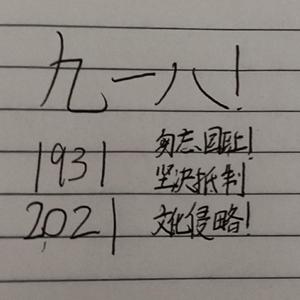 九一八!
1931
2021
勿忘国耻!
坚决抵制
文化侵略!